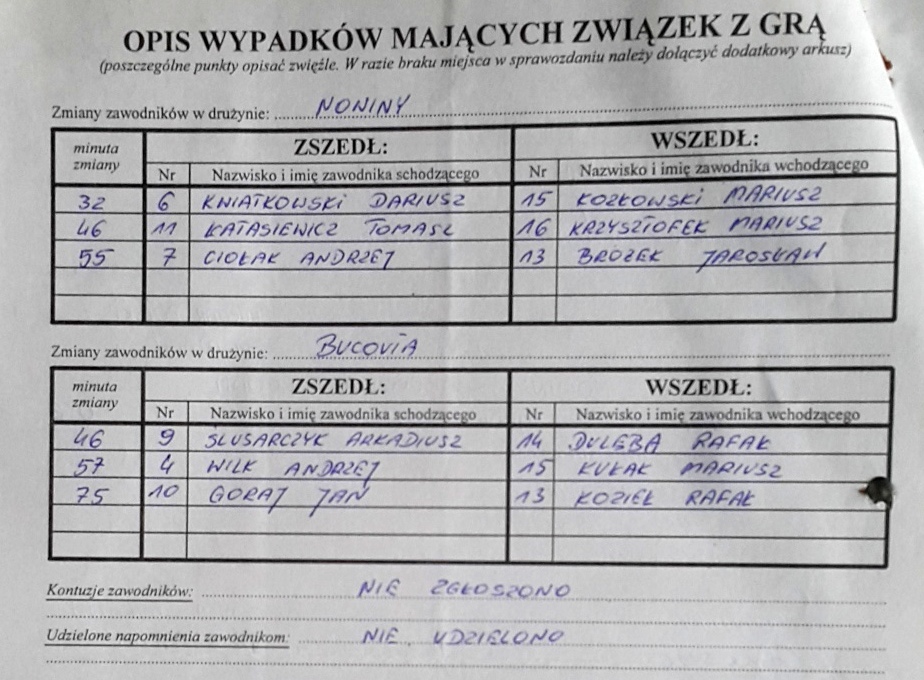 OPIS WYPADKÓW MAJĄCYCH ZWIĄZEK Z GRĄ
(poszczególne punkty opisać zwięźle. W razie braku miejsca w sprawozdaniu należy dołączyć dodatkowy arkusz)
Zmiany zawodników w drużynie: NONINY
minuta zmiany ZSZEDŁ: WSZEDŁ:
Nr Nazwisko i imię zawodnika schodzącego Nr Nazwisko i imię zawodnika wchodzącego
32 6 KWIATKOWSKI DARIUSZ 15 KOZŁOWSKI MARIUSZ
46 11 KATASIEWICZ TOMASZ 16 KRZYSZTOFEK MARIUSZ
55 7 CIOŁAK ANDRZEJ 13 BROŻEK JAROSŁAW
Zmiany zawodników w drużynie: BUCOVIA
minuta zmiany ZSZEDŁ: WSZEDŁ:
Nr Nazwisko i imię zawodnika schodzącego Nr Nazwisko i imię zawodnika wchodzącego
46 9 ŚLUSARCZYK ARKADIUSZ 14 DULĘBA RAFAŁ
57 4 WILK ANDRZEJ 15 KUŁAK MARIUSZ
75 10 GÓRAJ JAN 13 KOZIEŁ RAFAŁ
Kontuzje zawodników: NIE ZGŁOSZONO
Udzielone napomnienia zawodnikom: NIE UDZIELONO